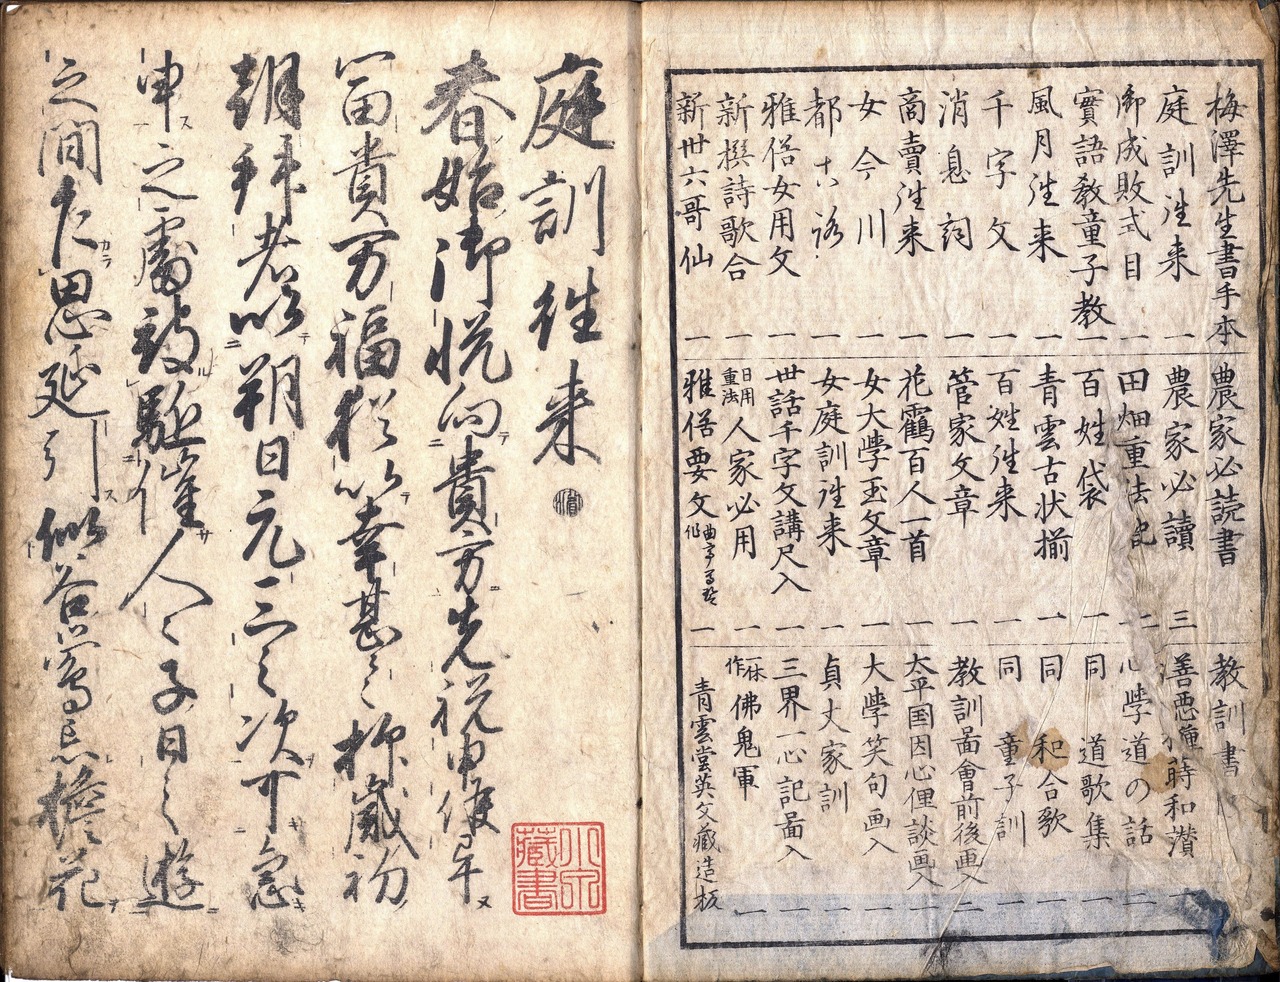 梅澤先生書手本
庭訓往来 一
御成敗式目 一
實語教童子教 一
風月往来 一
千字文 一
消息詞 一
商賣往来 一
女今川 一
都古路 一
雅俗女用文 一
新撰詩歌合 一
新卅六哥仙 一
農家必読書
農家必讀 三
田畑重法記 二
百姓袋 一
青雲古状揃 一
百姓往来 一
菅家文章 一
花鶴百人一首 一
女大學玉文章 一
女庭訓往来 一
世話千字文講尺入 一
日用重法人家必用 一
雅俗要文 曲亭馬琴作 一
教訓書
善悪種蒔和讃 一
心學道の話 二
同 道歌集 一
同 和合歌 一
同 童子訓 一
教訓啚會前後画入 二
太平国因心俚談画入 一
大學笑句画入 一
貞丈家訓 一
三界一心記啚入 一
一休作佛鬼軍 一
青雲堂英文藏造板
庭訓往来
春始御悦向貴方先祝申候畢
冨貴万福猶以幸甚々抑歳初
朝拝者以朔日元三之次可急
申之處被駈催人々子日之遊
之間乍思延引似谷鶯忘檐花
藏書